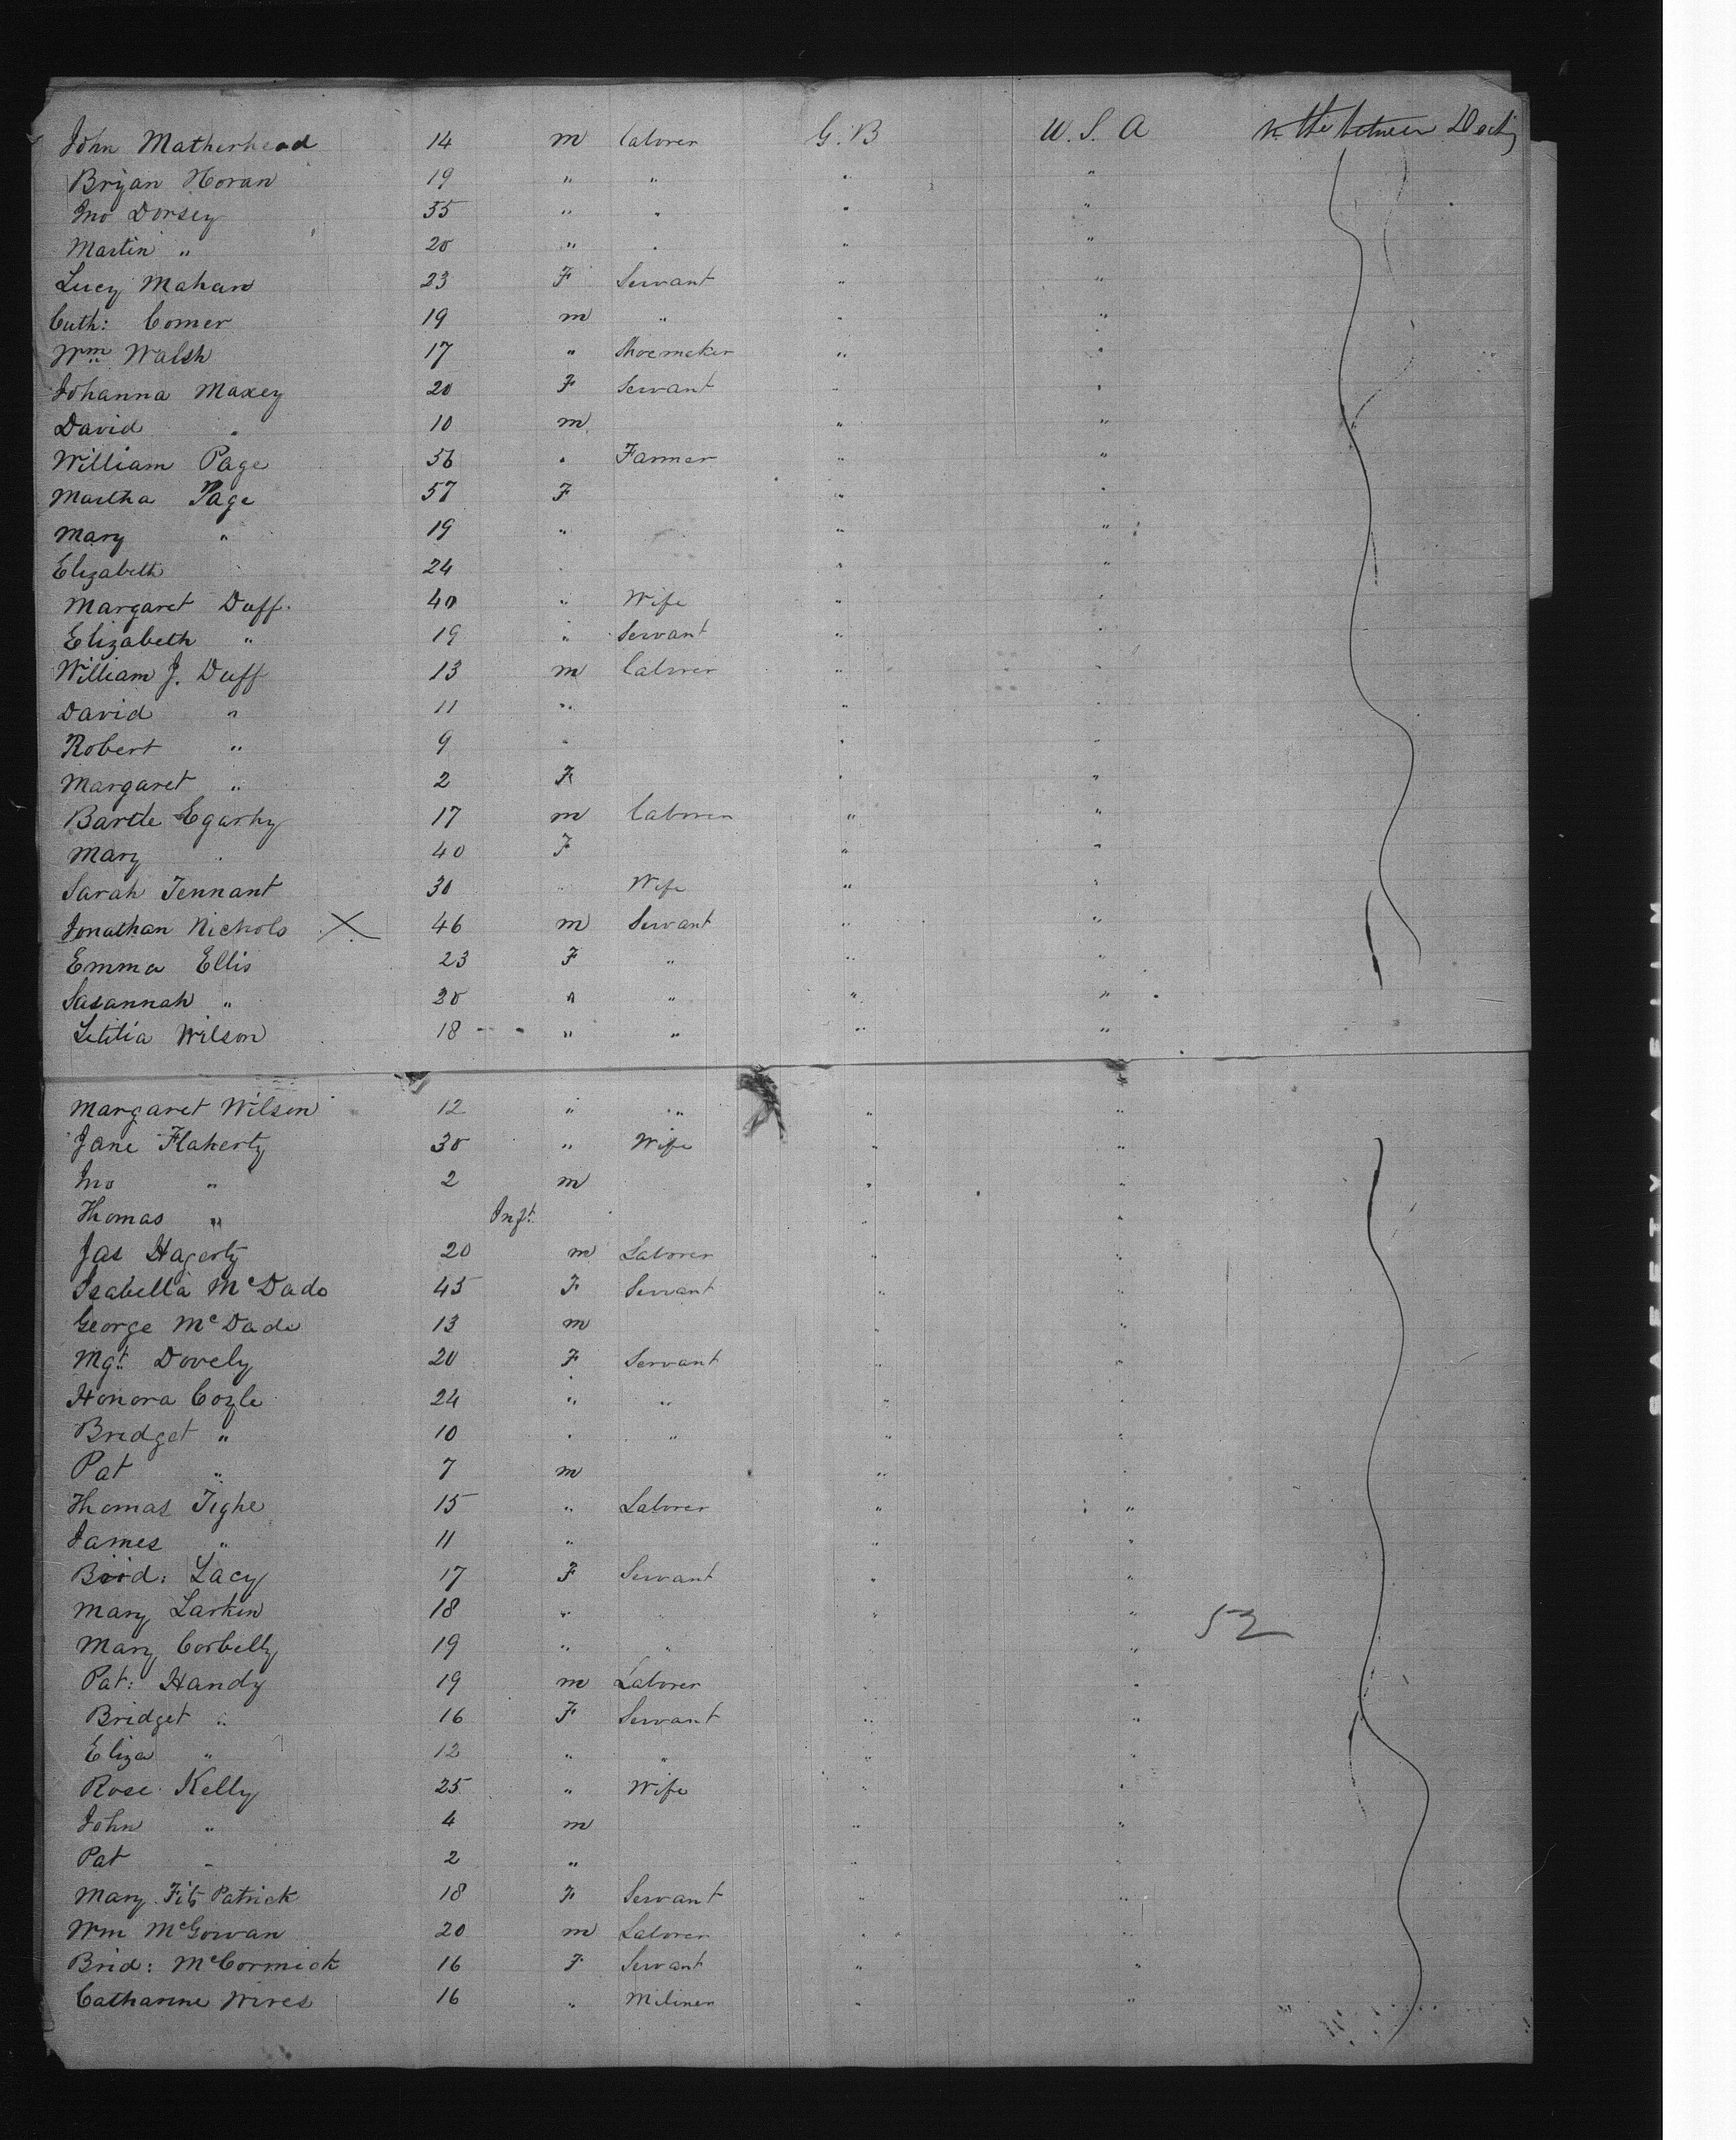 John Matherhead 14 m laborer G. B U. S. A In the between Decks
Bryan Horan 19 " " " "
Jno Dorsey 35 " " " "
Martin " 20 " " " "
Lucy Mahan 23 F Servant " "
Cath: Comer 19 m " " "
Wm Walsh 17 " Shoemaker " "
Johanna Maxey 20 F Servant " "
David " 10 m " "
William Page 56 " Farmer " "
Martha Page 57 F " "
Mary " 19 " " "
Elizabeth 24 " " "
Margaret Duff 40 " Wife " "
Elizabeth " 19 " Servant " "
William J. Duff 13 m laborer " "
David " 11 " " "
Robert " 9 " " "
Margaret " 2 F " "
Bartle Egarhy 17 m laborer " "
Mary " 40 F " "
Sarah Tennant 30 " Wife " "
Jonathan Nichols X 46 m Servant " "
Emma Ellis 23 F " " "
Susannah " 20 " " " "
Letitia Wilson 18 " " " "
Margaret Wilson 12 " " " "
Jane Flaherty 30 " Wife " "
Jno " 2 m " "
Thomas " Inft " "
Jas Hagerty 20 m Laborer " "
Isabella McDade 45 F Servant " "
George McDade 13 m " "
Mgt Dovely 20 F Servant " "
Honora Coyle 24 " " " "
Bridget " 10 " " " "
Pat " 7 m " "
Thomas Tighe 15 " Laborer " "
James " 11 " " "
Brid: Lacy 17 F Servant " "
Mary Larkin 18 " " "
Mary Corbelly 19 " " " " 52
Pat: Handy 19 m Laborer " "
Bridget " 16 F Servant " "
Eliza " 12 " " " "
Rose Kelly 25 " Wife " "
John " 4 m " "
Pat " 2 " " "
Mary Fitz Patrick 18 F Servant " "
Wm McGowan 20 m Laborer " "
Brid: McCormick 16 F Servant " "
Catharine Wires 16 " Miliner " "
SAFETY FILM